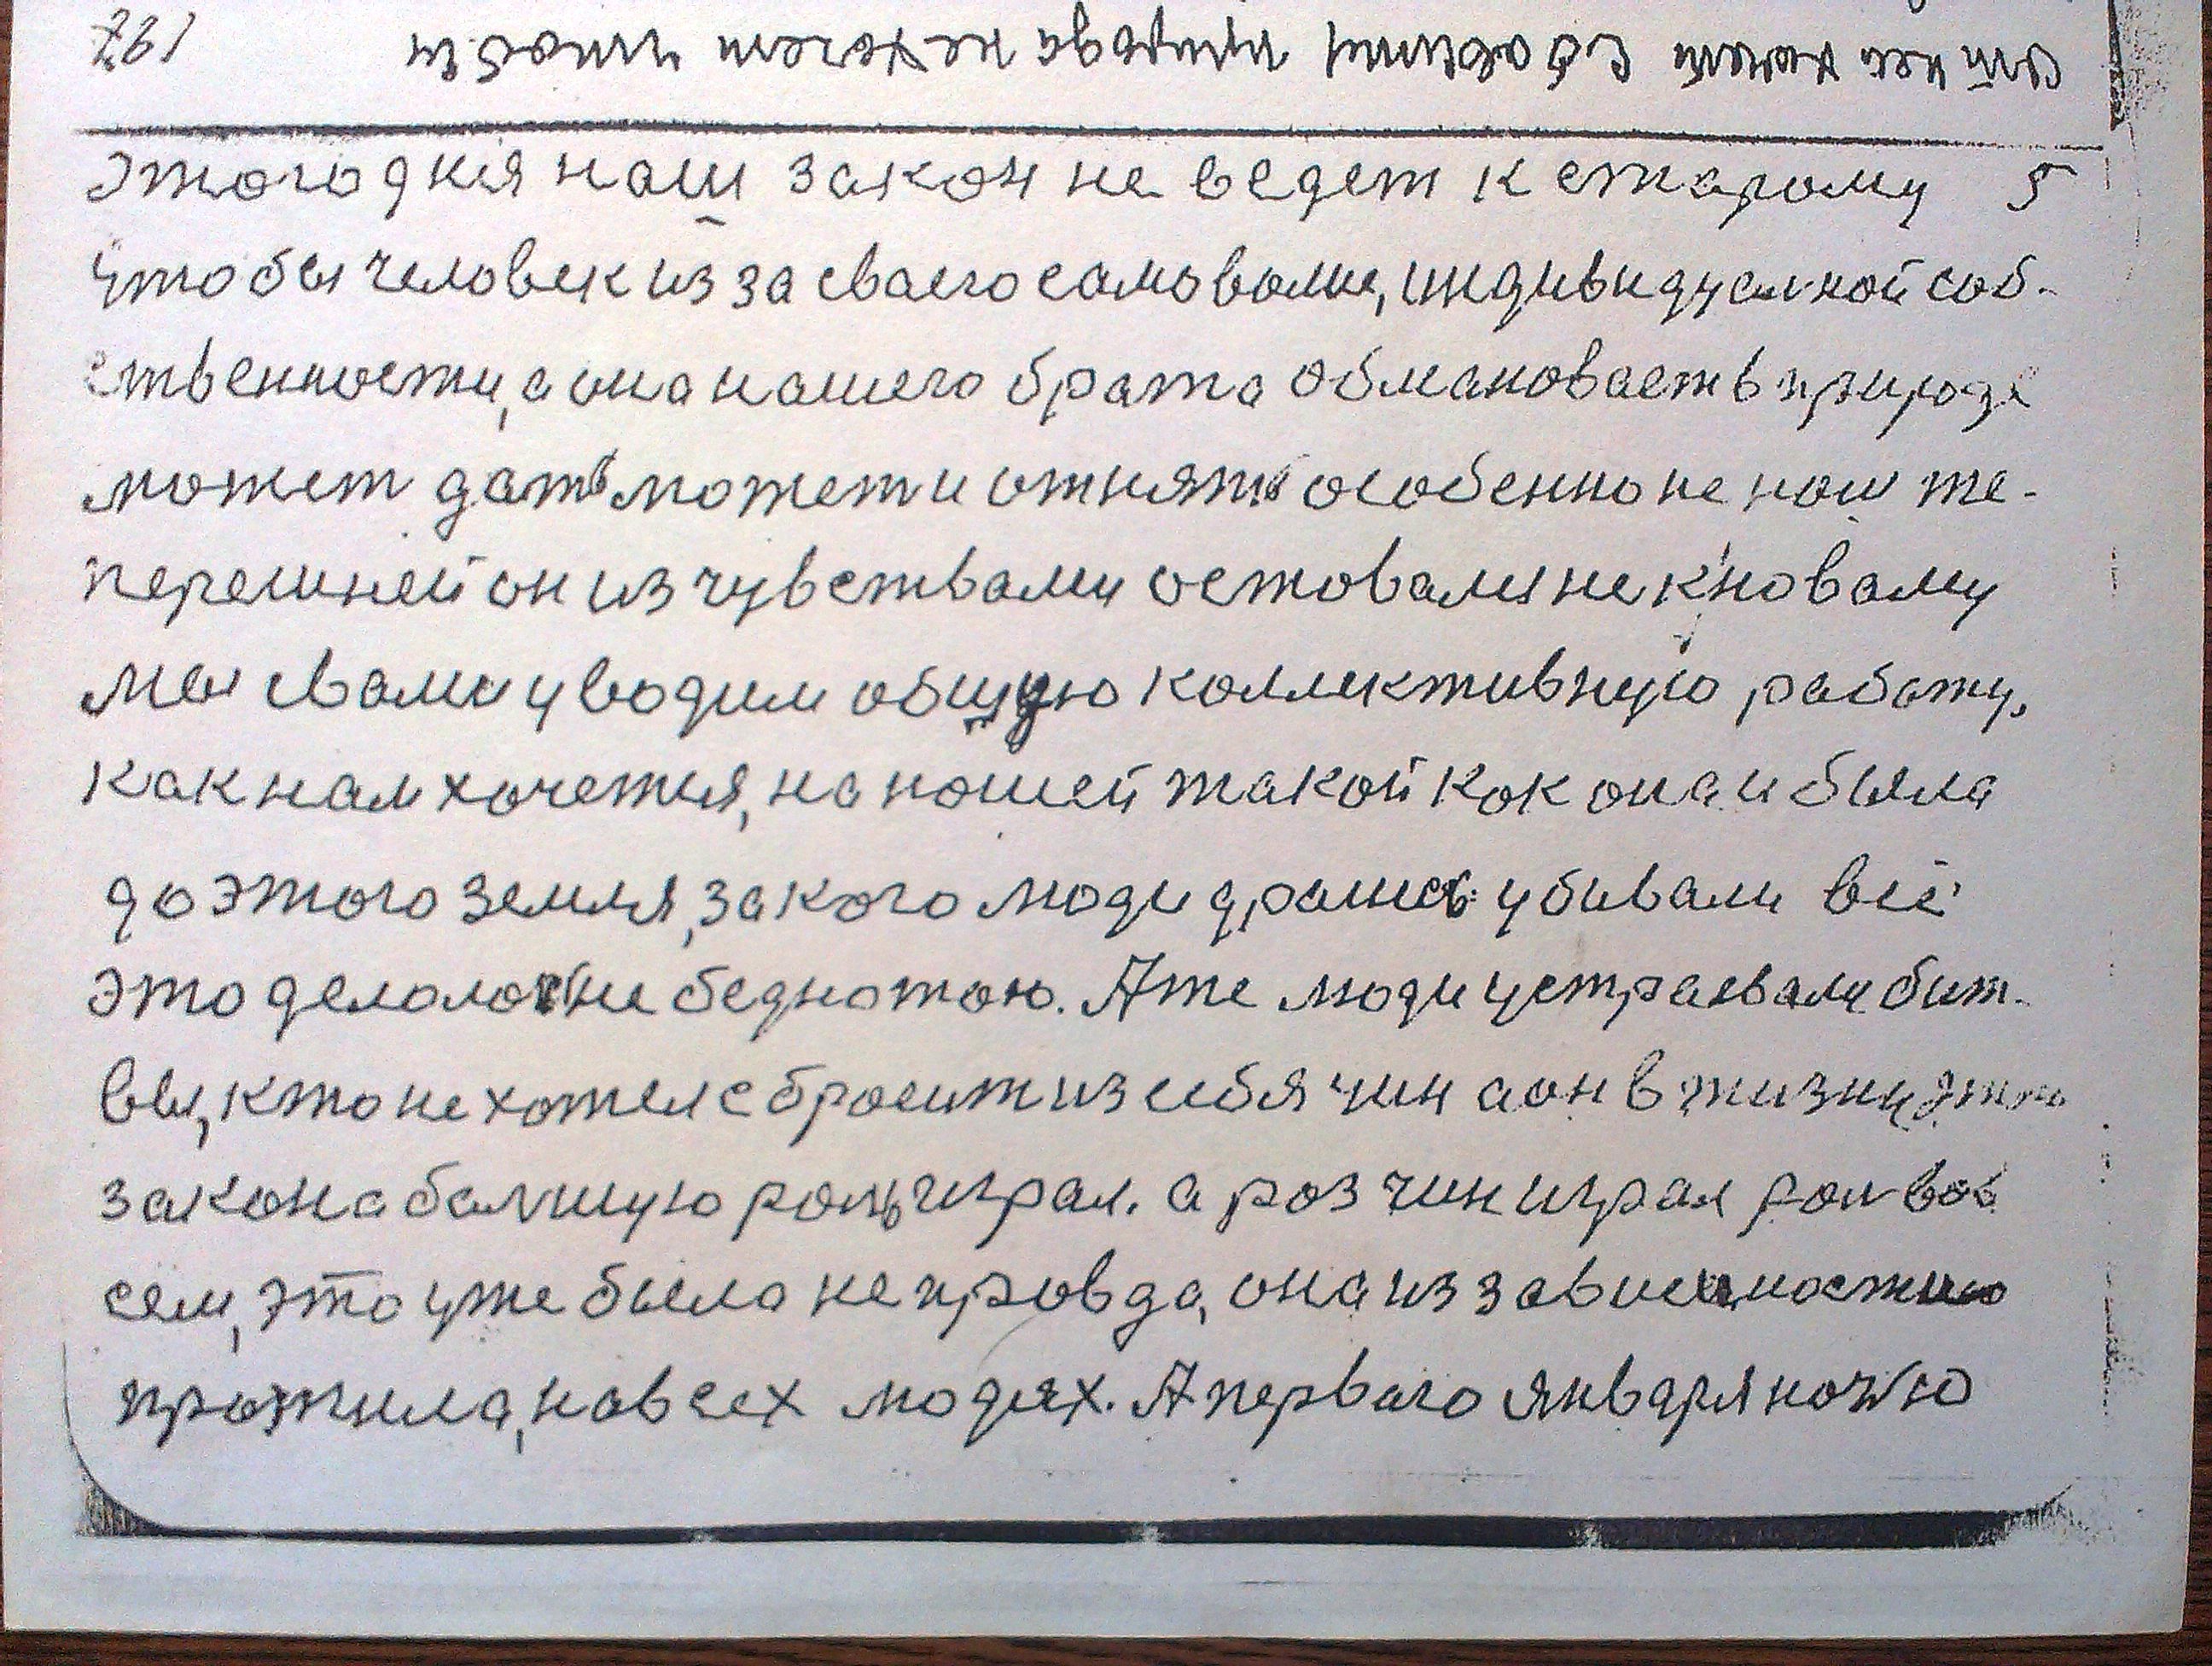 этого дня наш закон не ведет к старому 5
чтобы человек из за сваего самоволие, индивидуалной соб-
ственности, а она нашего брата обмановает в природе
может дать может и отнять особенно не наш те-
перешней он из чувствами оставался не к новаму
мы свами уводим общую коллективную работу.
как нам хочется, на нашей такой как она и была
до этого земля, за кого люди дрались убивали всё
это делалось не беднотою. А те люди устраевали бит-
вы, кто не хотел сбросит из себя чин а он в жизни этого
закона балшую роль играл. а раз чин играл рол вов
сем, это уже было не правда, она из зависимостию
прожила, на всех людях. А перваго января ночью